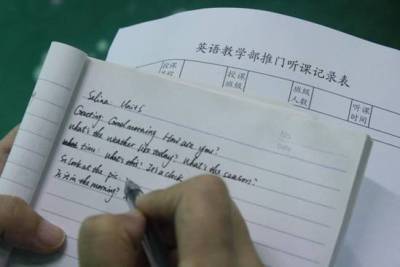 英语教学部推门听课记录表
授课
授课
班级
班级
人数
听课
时间
No
Date
Selina Unit 6
Greeting: Good morning How are you?
What's the weather like today? What's the season?
time: what's this? It's a clock
So look at the pic
Is it in the morning?